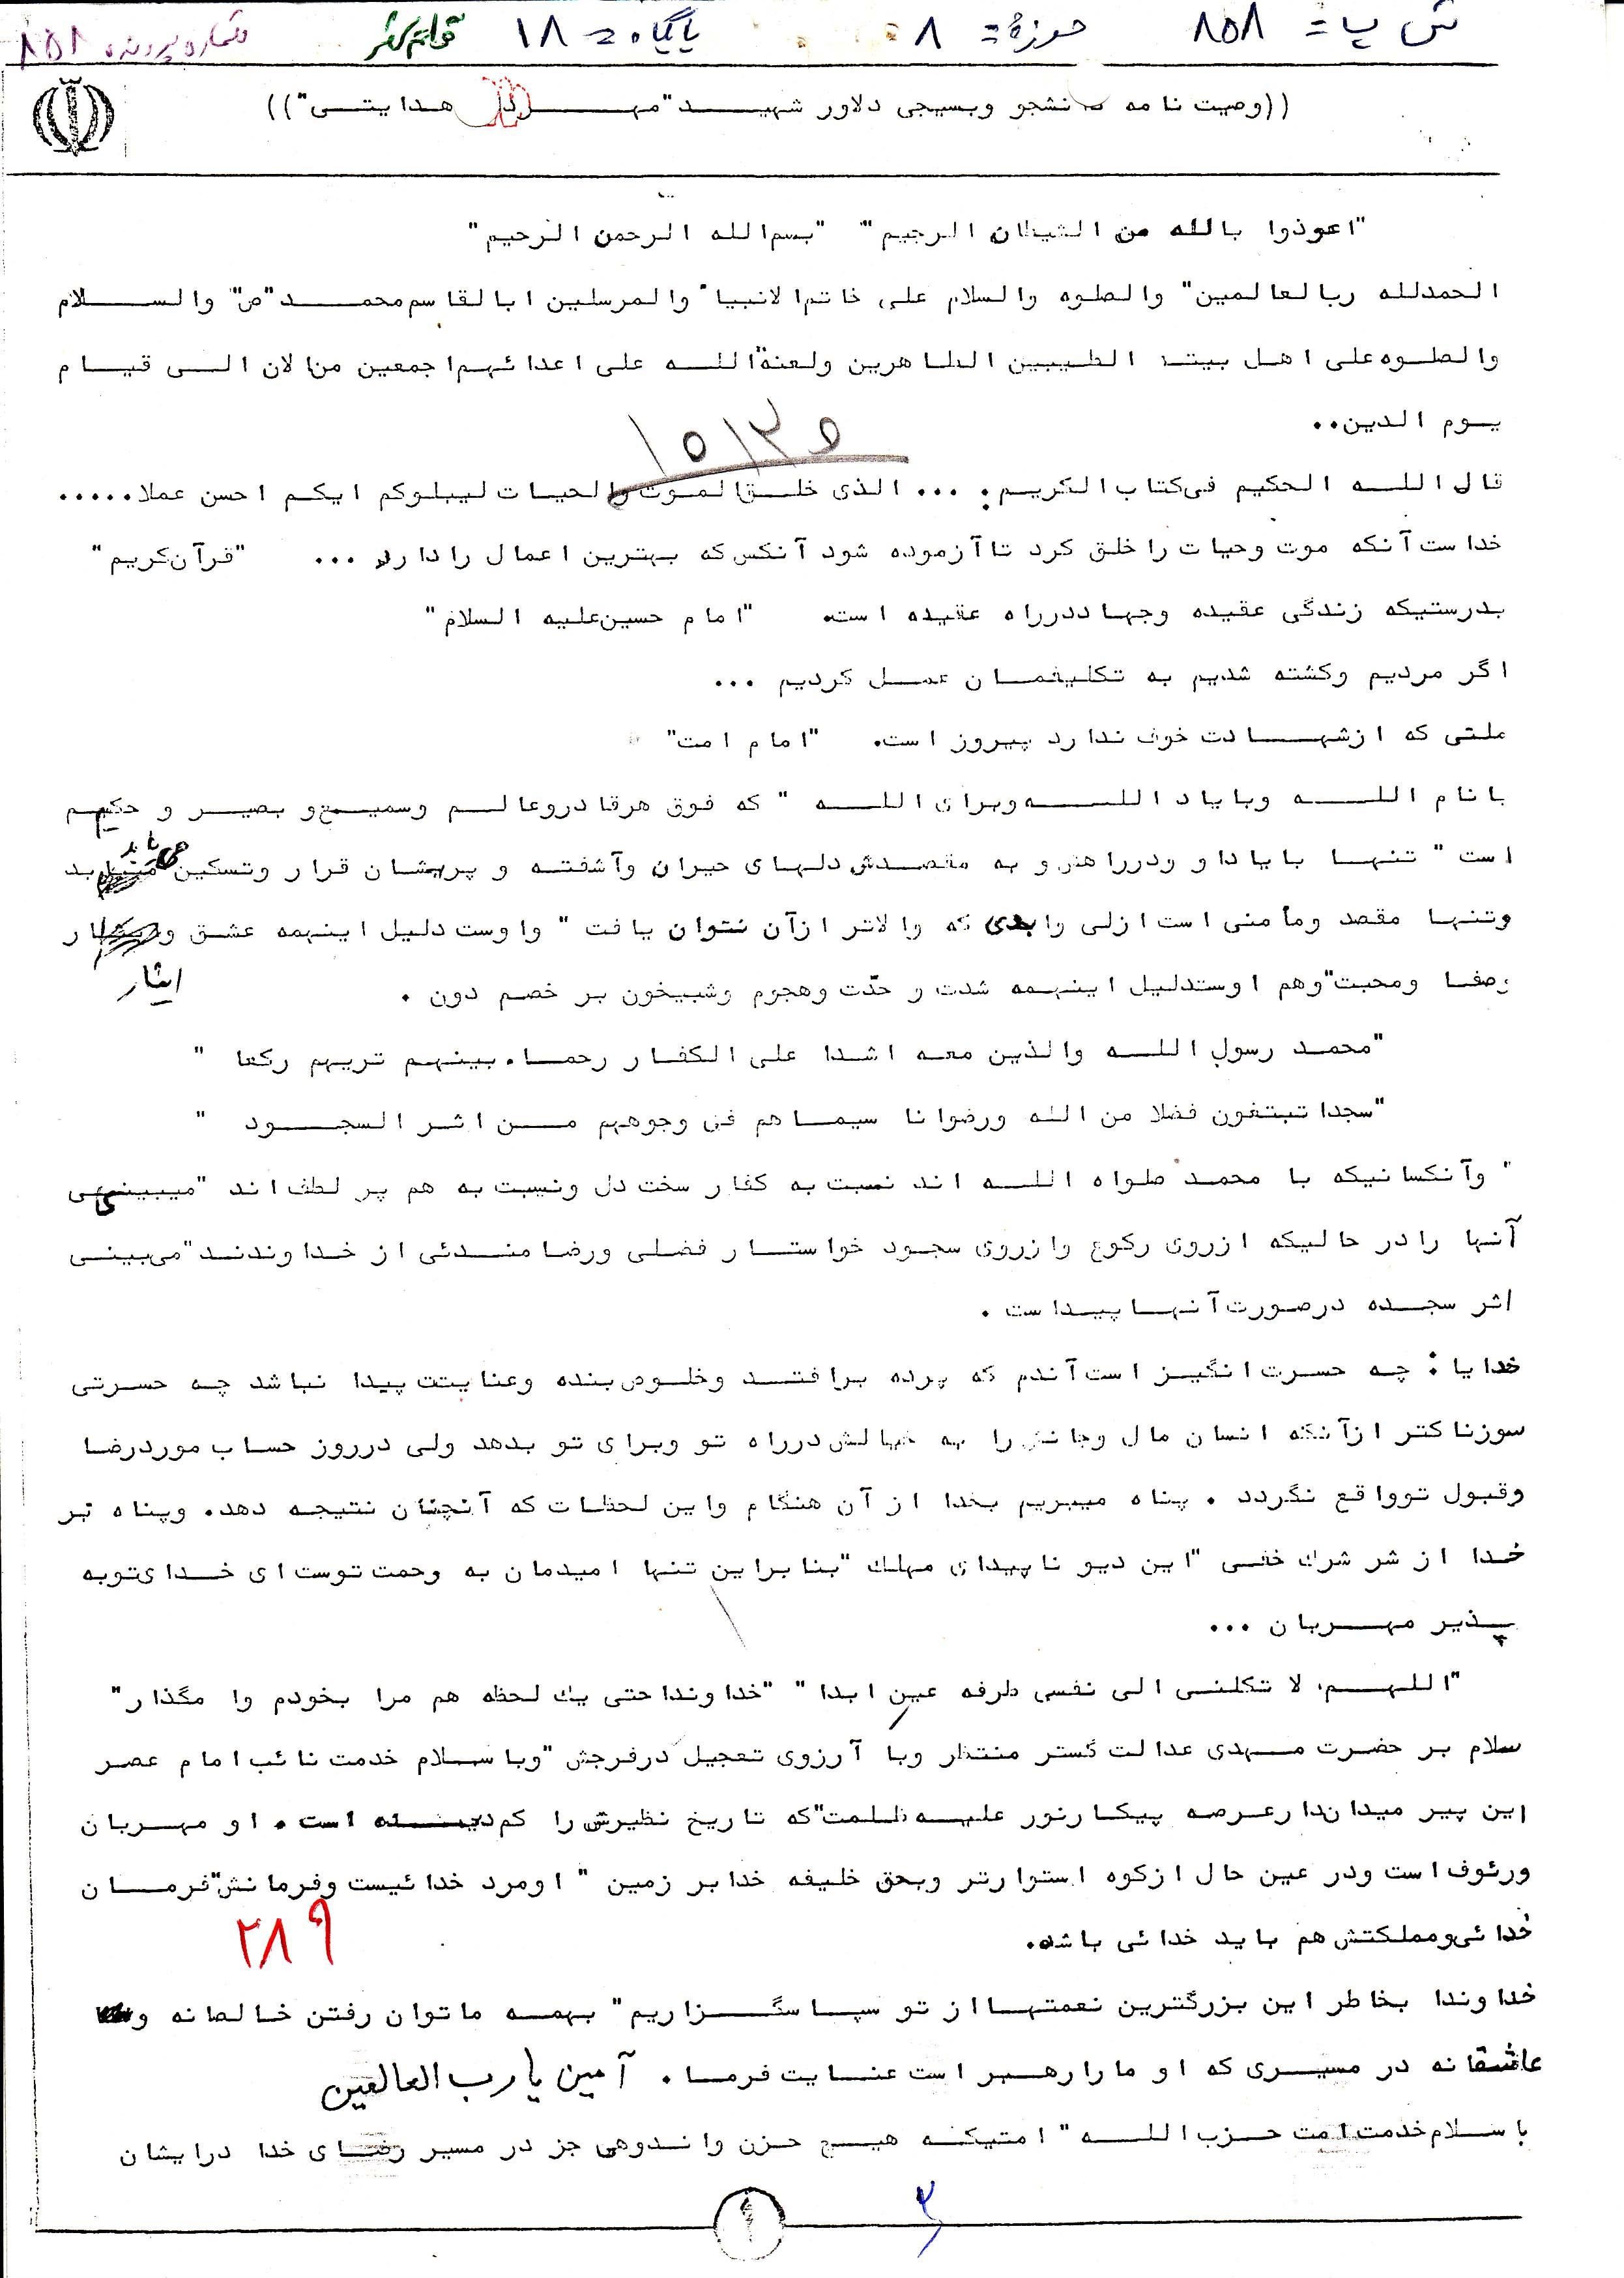 ش پ = ۸۵۸ حوزهٔ = ۸ پایگاه = ۱۸ شماره پرونده ۸۵۸
((وصیت نامه دانشجو وبسیجی دلاور شهید "مهرداد هدایتی"))
"اعوذوا بالله من الشیطان الرجیم" "بسم الله الرحمن الرحیم"
الحمدلله رب العالمین" والصلوه والسلام علی خاتم الانبیا ٔ والمرسلین ابالقاسم محمد "ص" والسلام
والصلوه علی اهل بیته الطیبین الطاهرین ولعنة الله علی اعدائهم اجمعین من لان الی قیام
یوم الدین..
۱۵۱۳۵
قال الله الحکیم فی کتاب الکریم: ... الذی خلق الموت والحیات لیبلوکم ایکم احسن عملا.....
خداست آنکه موت وحیات را خلق کرد تا آزموده شود آنکس که بهترین اعمال را دارد ... "قرآن کریم"
بدرستیکه زندگی عقیده وجهاد درراه عقیده است. "امام حسین علیه السلام"
اگر مردیم وکشته شدیم به تکلیفمان عمل کردیم ...
ملتی که ازشهادت خوف ندارد پیروز است. "امام امت"
بانام الله وبایاد الله وبرای الله " که فوق هرقادر وعالم وسمیع و بصیر و حکیم
است " تنها بایاد او ودرراه او و به مقصدش دلهای حیران وآشفته و پریشان قرار وتسکین می یابد
وتنها مقصد ومأمنی است ازلی وابدی که والاتر ازآن نتوان یافت " واوست دلیل اینهمه عشق و ایثار
وصفا ومحبت" وهم اوستدلیل اینهمه شدت و حدّت وهجوم وشبیخون بر خصم دون .
"محمد رسول الله والذین معه اشدا علی الکفار رحماء بینهم تریهم رکعا "
"سجدا تبتغون فضلا من الله ورضوانا سیماهم فی وجوههم من اثر السجود "
" وآنکسانیکه با محمد صلواه الله اند نسبت به کفار سخت دل ونسبت به هم پر لطف اند "میبینی
آنها را در حالیکه ازروی رکوع وازروی سجود خواستار فضلی ورضامندئی از خداوندند" می بینی
اثر سجده درصورت آنها پیداست .
خدایا : چه حسرت انگیز است آندم که پرده برافتد وخلوص بنده وعنایتت پیدا نباشد چه حسرتی
سوزناکتر ازآنکه انسان مال وجانش را به خیالش درراه تو وبرای تو بدهد ولی درروز حساب موردرضا
وقبول توواقع نگردد . پناه میبریم بخدا از آن هنگام واین لحظات که آنچنان نتیجه دهد. وپناه بر
خدا از شر شرک خفی "این دیو ناپیدای مهلک "بنابراین تنها امیدمان به وحمت توست ای خدای توبه
پذیر مهربان ...
"اللهم، لا تکلنی الی نفسی طرفه عین ابدا" "خداوندا حتی یک لحظه هم مرا بخودم وا مگذار"
سلام بر حضرت مهدی عدالت گستر منتظر وبا آرزوی تعجیل درفرجش "وبا سلام خدمت نائب امام عصر
این پیر میدان‌دار عرصه پیکار نور علیه ظلمت" که تاریخ نظیرش را کم دیده است . او مهربان
ورئوف است ودر عین حال ازکوه استوارتر وبحق خلیفه خدا بر زمین " اومرد خدائیست وفرمانش "فرمان
خدائی ومملکتش هم باید خدائی باشد.
۲۸۹
خداوندا بخاطر این بزرگترین نعمتها از تو سپاسگزاریم" بهمه ماتوان رفتن خالصانه و
عاشقانه در مسیری که او مارا رهبر است عنایت فرما . آمین یا رب العالمین
باسلام خدمت امت حزب الله " امتیکه هیچ حزن واندوهی جز در مسیر رضای خدا درایشان
۱